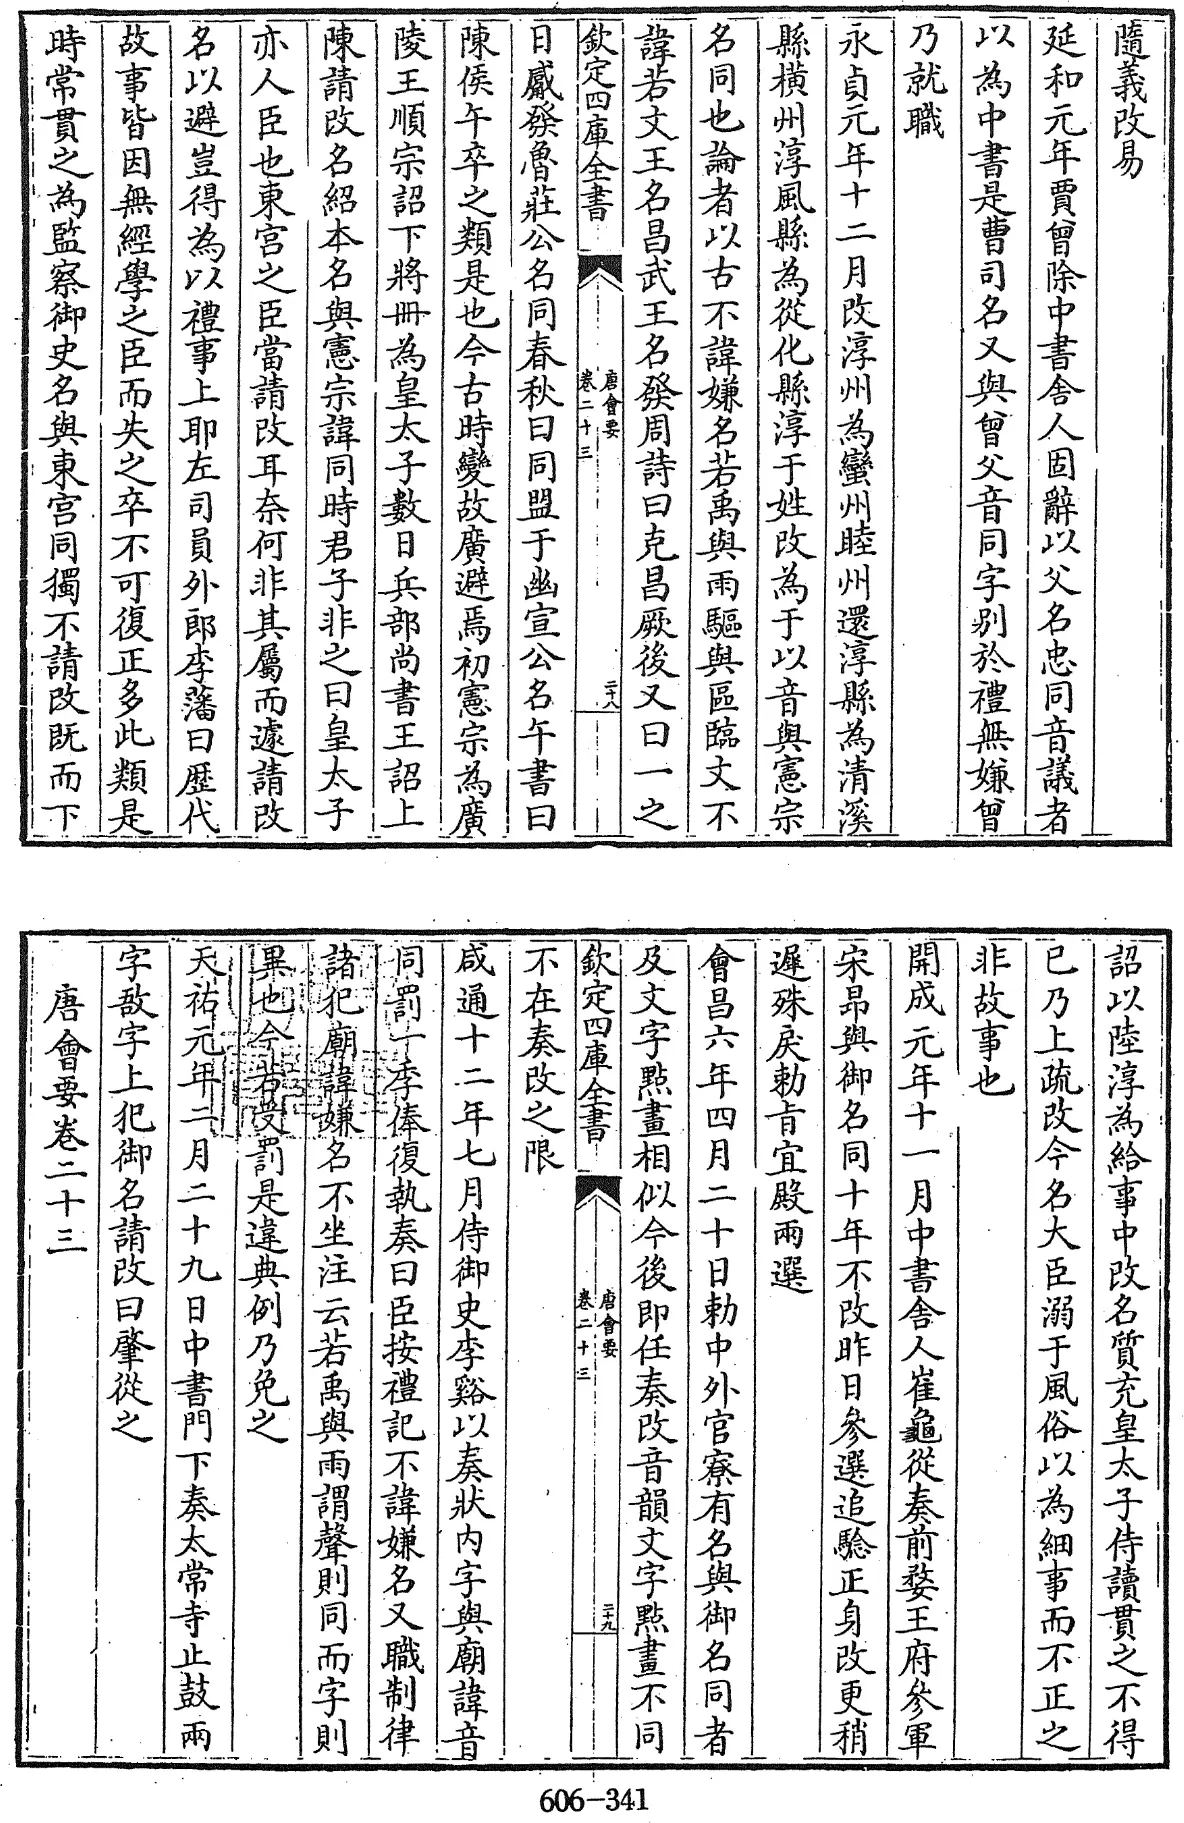 隨義改易
延和元年賈曾除中書舍人固辭以父名忠同音議者
以為中書是曹司名又與曾父音同字别於禮無嫌曾
乃就職
永貞元年十二月改淳州為蠻州睦州還淳縣為清溪
縣橫州淳風縣為從化縣淳于姓改為于以音與憲宗
名同也論者以古不諱嫌名若禹與雨驅與區臨文不
諱若文王名昌武王名發周詩曰克昌厥後又曰一之
欽定四庫全書
唐會要
卷二十三
二十八
日觱發魯莊公名同春秋曰同盟于幽宣公名午書曰
陳侯午卒之類是也今古時變故廣避焉初憲宗為廣
陵王順宗詔下將冊為皇太子數日兵部尚書王詔上
陳請改名紹本名與憲宗諱同時君子非之曰皇太子
亦人臣也東宮之臣當請改耳奈何非其屬而遽請改
名以避豈得為以禮事上耶左司員外郎李藩曰歴代
故事皆因無經學之臣而失之卒不可復正多此類是
時常貫之為監察御史名與東宮同獨不請改既而下
詔以陸淳為給事中改名質充皇太子侍讀貫之不得
已乃上疏改今名大臣溺于風俗以為細事而不正之
非故事也
開成元年十一月中書舍人崔龜從奏前婺王府參軍
宋昻與御名同十年不改昨日參選追驗正身改更稍
遲殊戾勅旨宜殿兩選
會昌六年四月二十日勅中外官寮有名與御名同者
及文字點畫相似今後即任奏改音韻文字點畫不同
欽定四庫全書
唐會要
卷二十三
二十九
不在奏改之限
咸通十二年七月侍御史李谿以奏狀内字與廟諱音
同罰一季俸復執奏曰臣按禮記不諱嫌名又職制律
諸犯廟諱嫌名不坐注云若禹與雨謂聲則同而字則
異也今若受罰是違典例乃免之
天祐元年二月二十九日中書門下奏太常寺止鼓兩
字敔字上犯御名請改曰肇從之
唐會要卷二十三
606-341